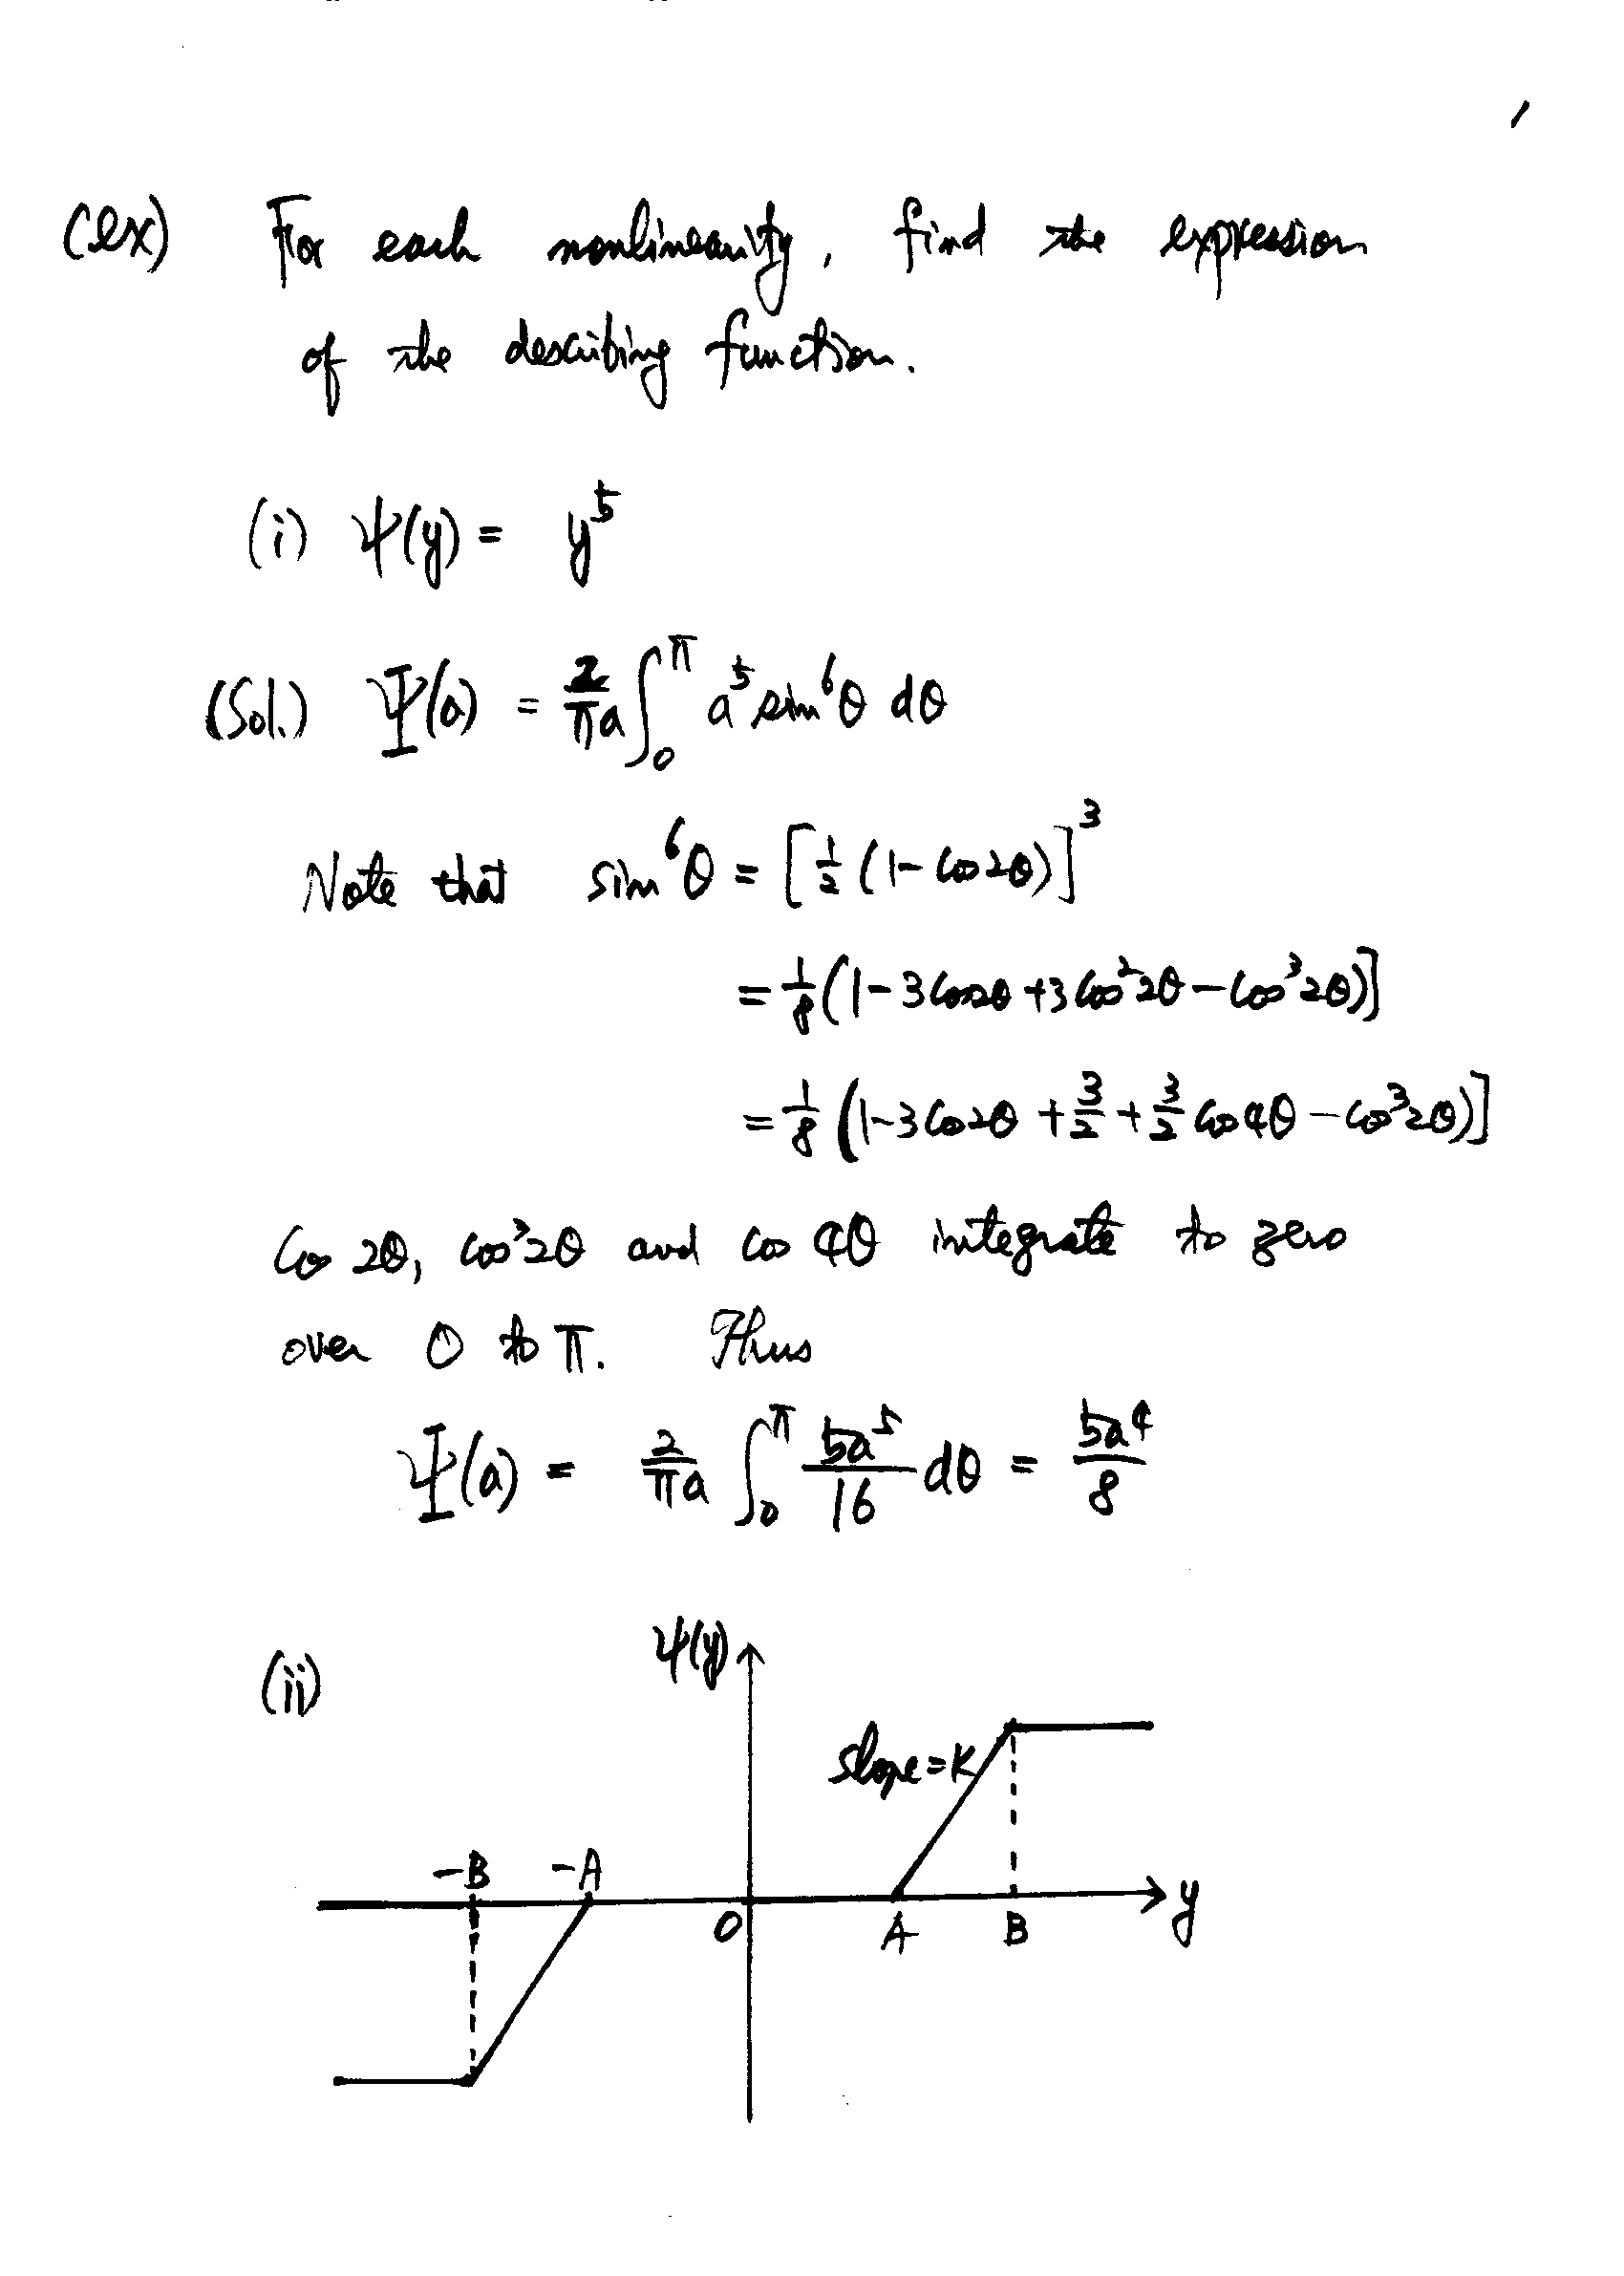 (ex) For each nonlinearity, find the expression
of the describing function.
(i) ψ(y) = y⁵
(Sol.) Ψ(a) = 2/πa ∫₀^π a⁵ sin⁶θ dθ
Note that sin⁶θ = [½(1 - cos2θ)]³
= 1/8 (1 - 3cos2θ + 3cos²2θ - cos³2θ)]
= 1/8 (1 - 3cos2θ + 3/2 + 3/2 cos4θ - cos³2θ)]
Cos 2θ, cos³2θ and cos 4θ integrate to zero
over 0 to π. Thus
Ψ(a) = 2/πa ∫₀^π 5a⁵/16 dθ = 5a⁴/8
(ii) ψ(y)
slope=K
-B -A
O A B y